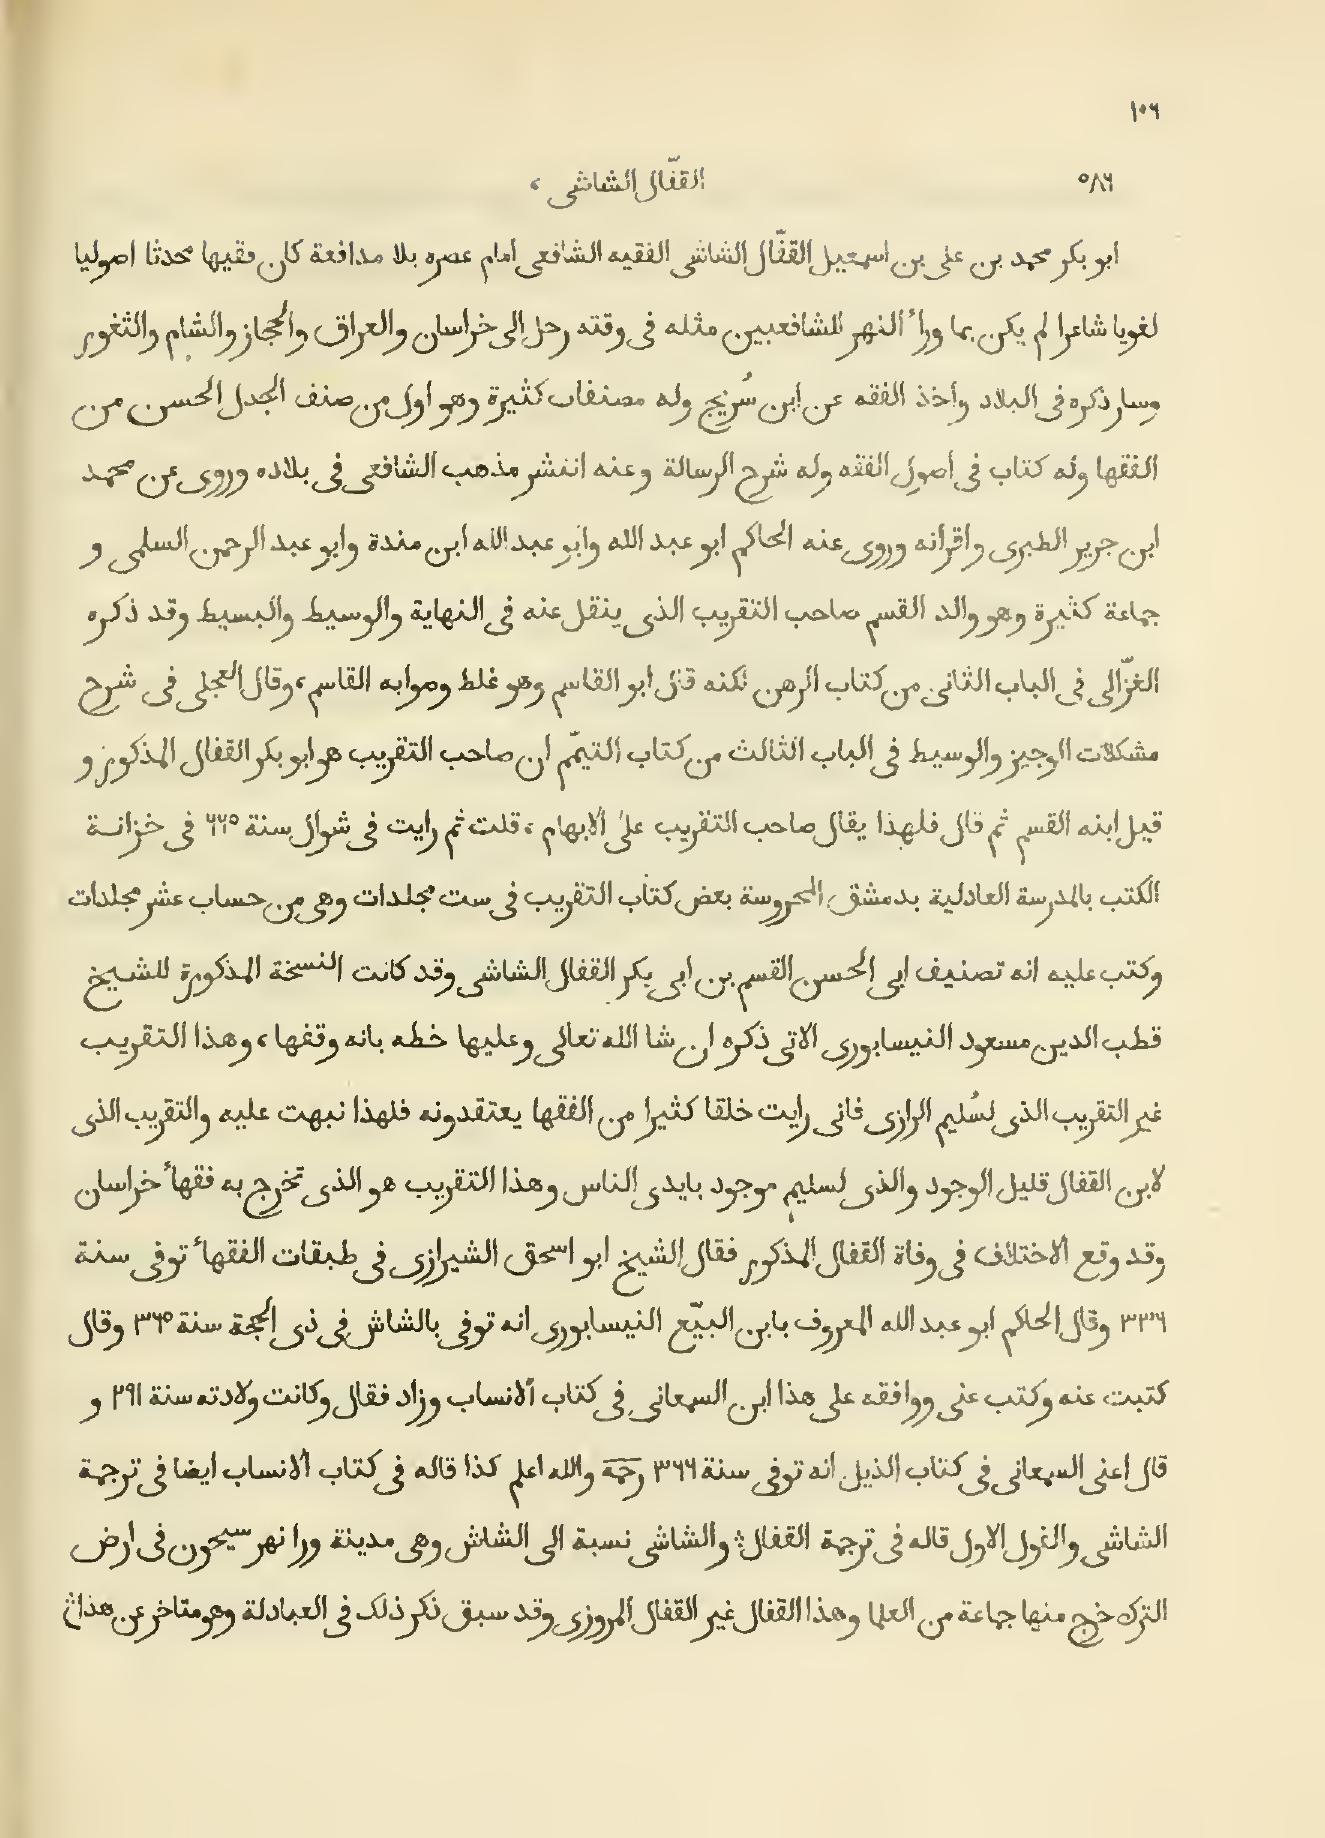 ١٠٦
٥٨٦ القفّال الشاشى ،
ابو بكر محمد بن على بن اسمعيل القفّال الشاشى الفقيه الشافعى امام عصره بلا مدافعة كان فقيها محدثا اصوليا
لغويا شاعرا لم يكن بما وراٴ النهر للشافعيين مثله فى وقته رحل الى خراسان والعراق والحجاز والشام والثغور
وسار ذكره فى البلاد واخذ الفقه عن ابن سُريج وله مصنفات كثيرة وهو اول من صنف الجدل الحسن من
الفقها وله كتاب فى اصول الفقه وله شرح الرسالة وعنه انتشر مذهب الشافعى فى بلاده وروى عن محمد
ابن جرير الطبرى واقرانه وروى عنه الحاكم ابو عبد الله وابو عبد الله ابن مندة وابو عبد الرحمن السلمى و
جماعة كثيرة وهو والد القسم صاحب التقريب الذى ينقل عنه فى النهاية والوسيط والبسيط وقد ذكره
الغزّالى فى الباب الثانى من كتاب الرهن لكنه قال ابو القاسم وهو غلط وصوابه القاسم ، وقال العجلى فى شرح
مشكلات الوجيز والوسيط فى الباب الثالث من كتاب التيمّم ان صاحب التقريب هو ابو بكر القفال المذكور و
قيل ابنه القسم ثم قال فلهذا يقال صاحب التقريب على الابهام ، قلت ثم رايت فى شوال سنة ٦٦٥ فى خزانة
الكتب بالمدرسة العادلية بدمشق المحروسة بعض كتاب التقريب فى ست مجلدات وهى من حساب عشر مجلدات
وكتب عليه انه تصنيف ابى الحسن القسم بن ابى بكر القفال الشاشى وقد كانت النسخة المذكورة للشيخ
قطب الدين مسعود النيسابورى الاتى ذكره ان شا الله تعالى وعليها خطه بانه وقفها ، وهذا التقريب
غير التقريب الذى لسُليم الرازى فانى رايت خلقا كثيرا من الفقها يعتقدونه فلهذا نبهت عليه والتقريب الذى
لابن القفال قليل الوجود والذى لسليم موجود بايدى الناس وهذا التقريب هو الذى تخرج به فقهاٴ خراسان
وقد وقع الاختلاف فى وفاة القفال المذكور فقال الشيخ ابو اسحق الشيرازى فى طبقات الفقهاٴ توفى سنة
٣٣٦ وقال الحاكم ابو عبد الله المعروف بابن البيّع النيسابورى انه توفى بالشاش فى ذى الحجة سنة ٣٦٥ وقال
كتبت عنه وكتب عنى ووافقه على هذا ابن السمعانى فى كتاب الانساب وزاد فقال وكانت ولادته سنة ٢٩١ و
قال اعنى السمعانى فى كتاب الذيل انه توفى سنة ٣٦٦ رحمة والله اعلم كذا قاله فى كتاب الانساب ايضا فى ترجمة
الشاشى والقول الاول قاله فى ترجمة القفال ؛ والشاشى نسبة الى الشاش وهى مدينة ورا نهر سيحون فى ارض
الترك خرج منها جماعة من العلما وهذا القفال غير القفال المروزى وقد سبق ذكر ذلك فى العبادلة وهو متاخر عن هذا